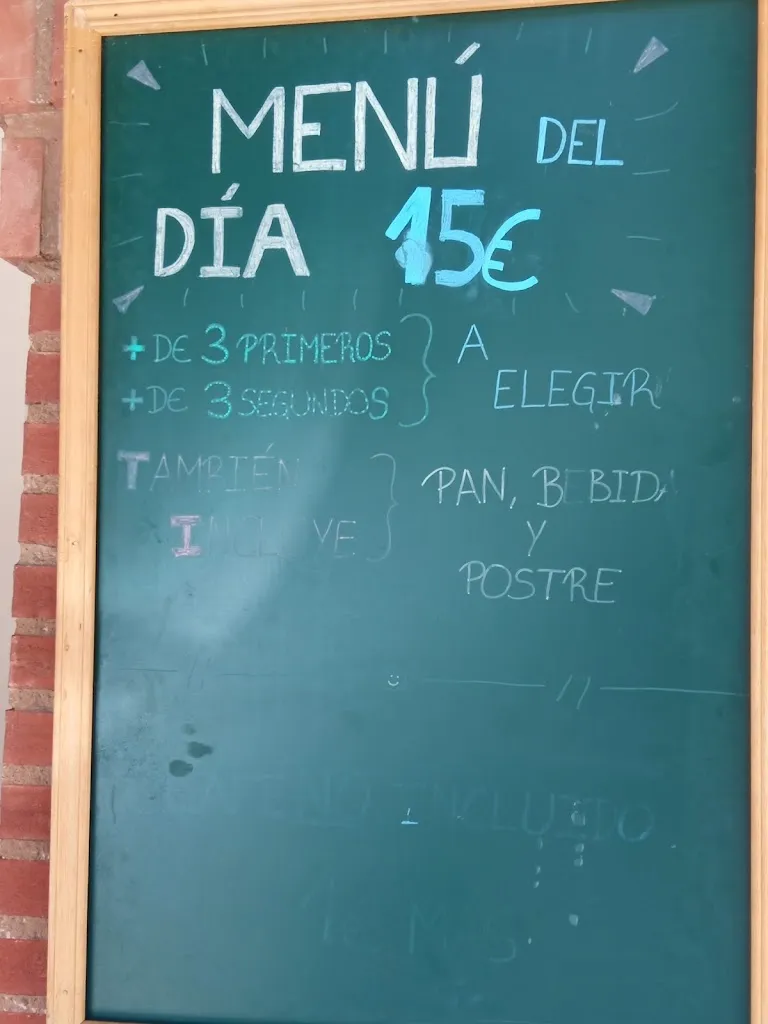 MENÚ DEL
DÍA 15€
+ DE 3 PRIMEROS
+ DE 3 SEGUNDOS
A
ELEGIR
TAMBIÉN
INCLUYE
PAN, BEBIDA
Y
POSTRE
INCLUIDO